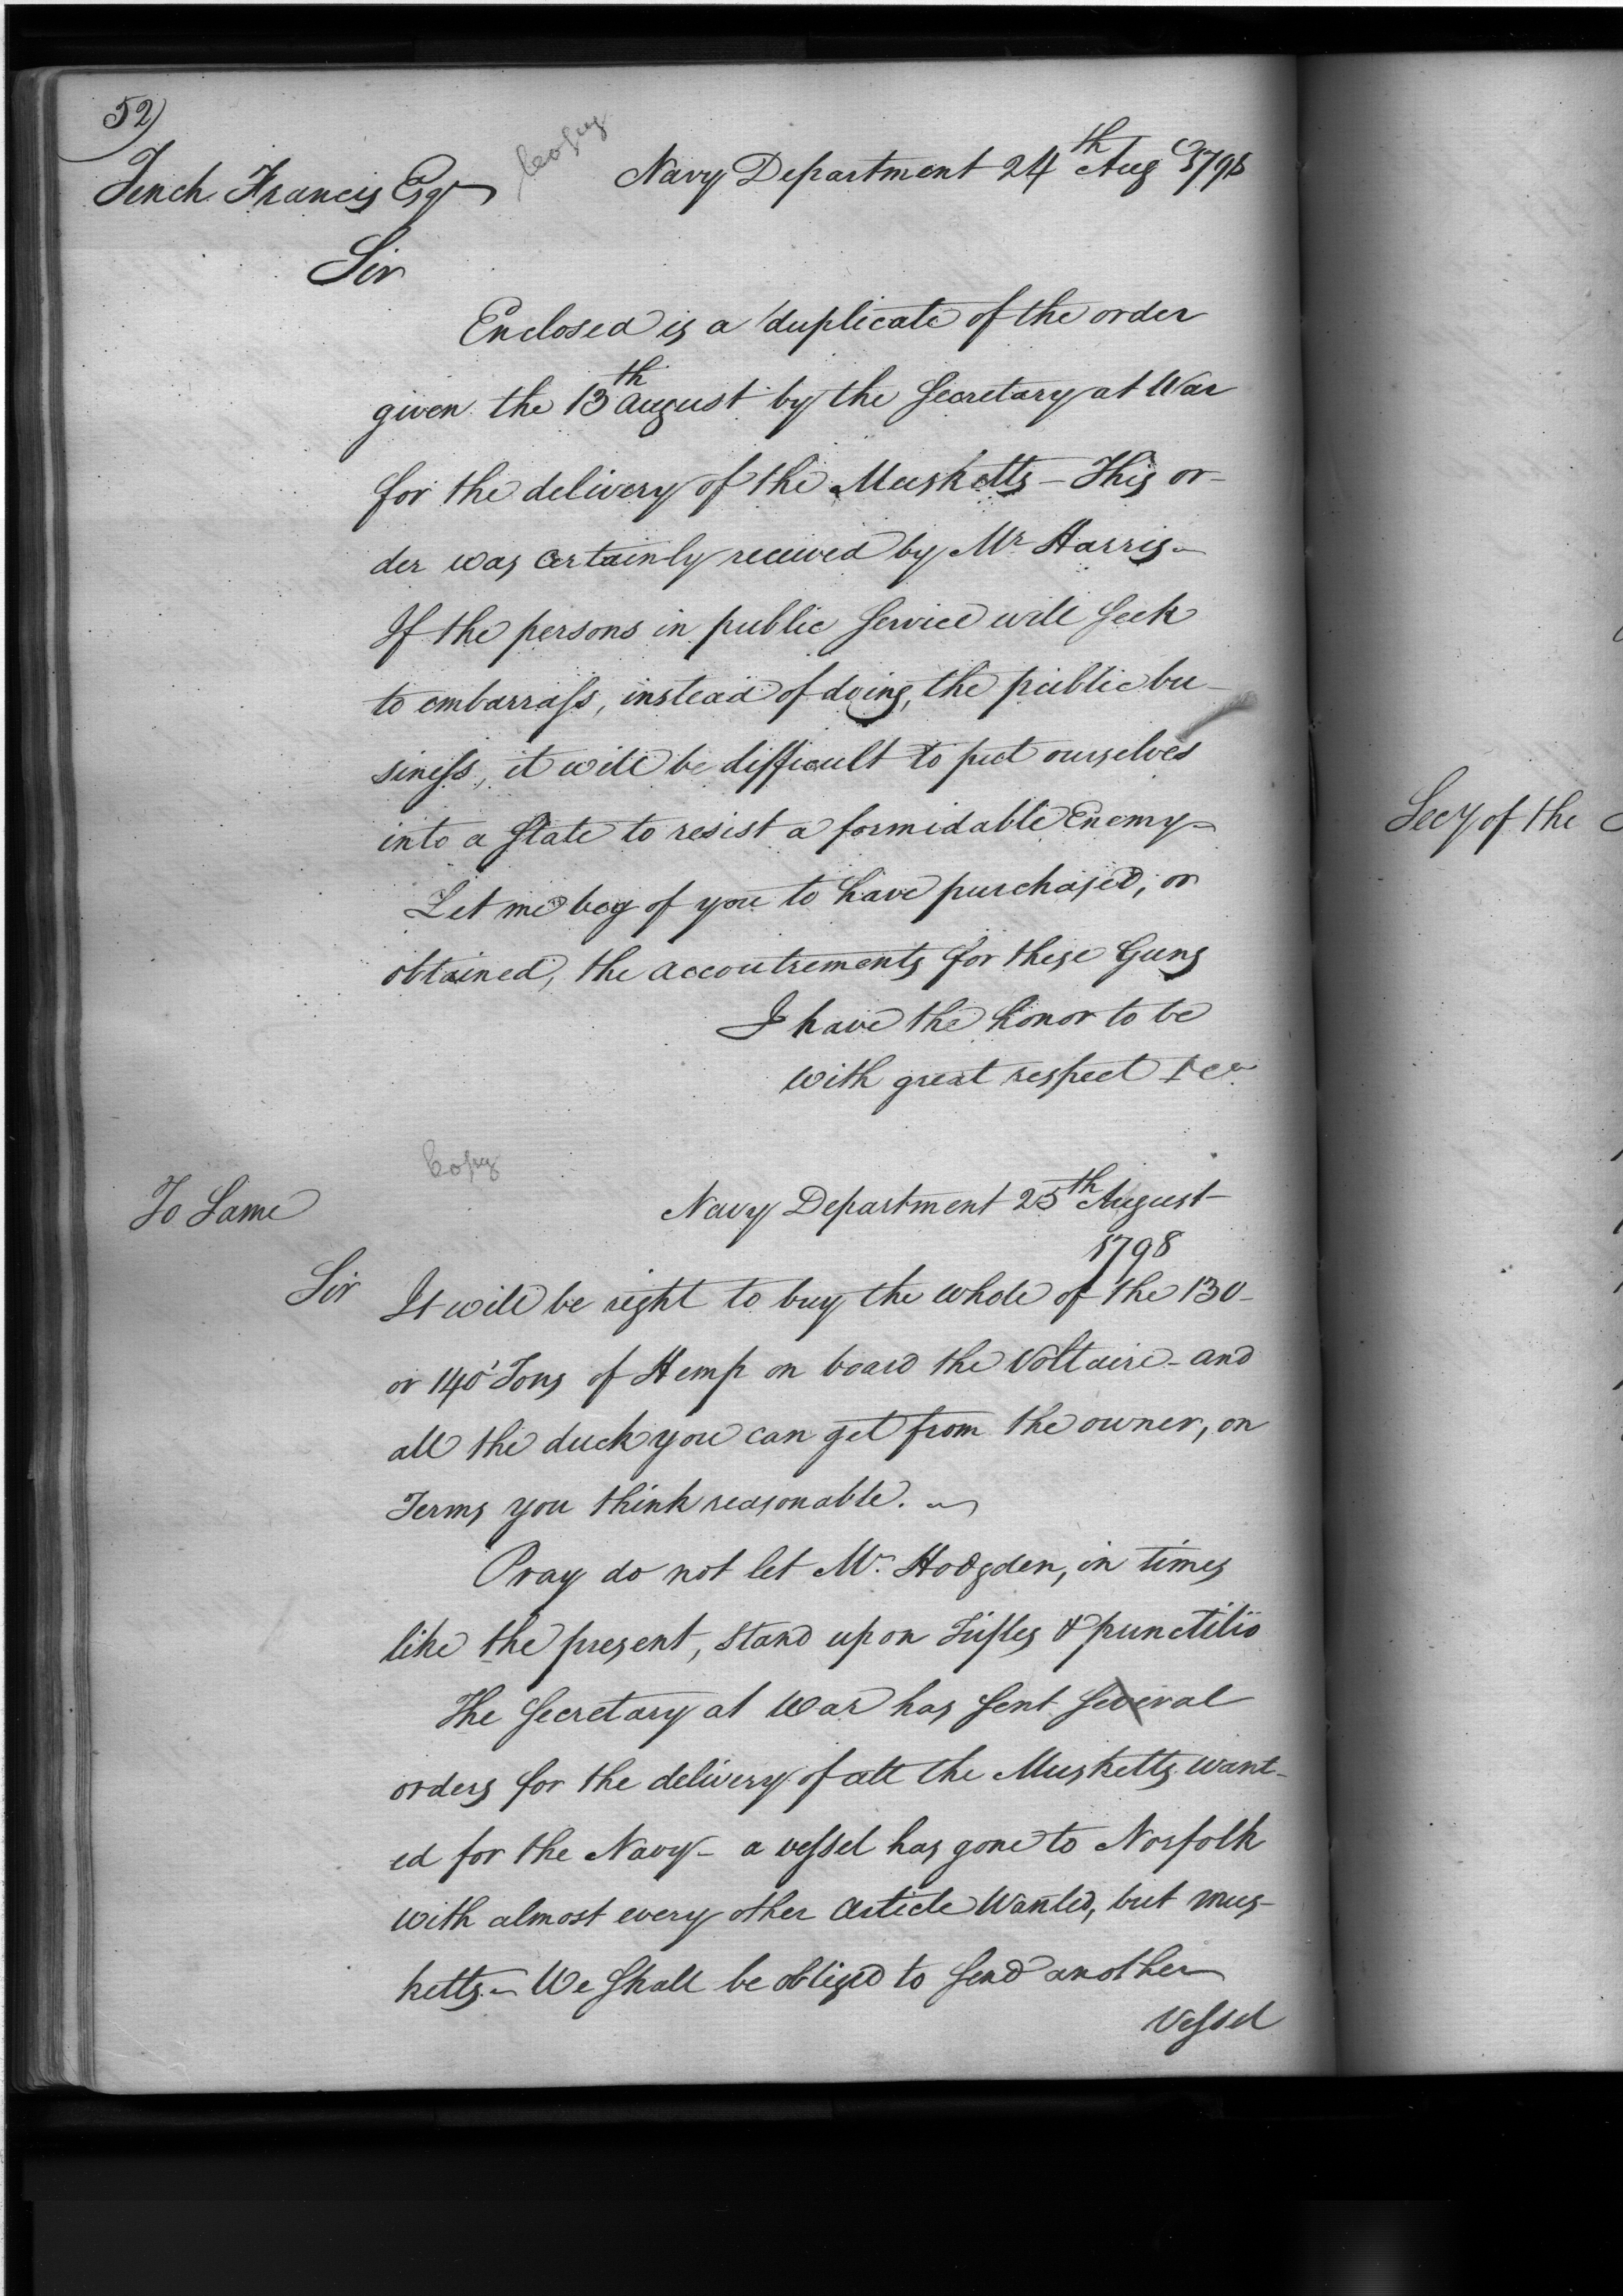 52)
Copy
Tench Francis Esqr
Navy Department 24th Aug 1798
Sir
Enclosed is a duplicate of the order
given the 13th August by the Secretary at War
for the delivery of the Musketts - This or-
der was certainly received by Mr Harris -
If the persons in public Service will seek
to embarrass, instead of doing, the public bu-
siness, it will be difficult to put ourselves
into a State to resist a formidable Enemy -
Let me beg of you to have purchased, or
obtained, the accoutrements for these Guns
I have the honor to be
with great respect &ca
Copy
To Same
Navy Department 25th August
1798
Sir
It will be right to buy the whole of the 130 -
or 140 Tons of Hemp on board the Voltaire - and
all the duck you can get from the owner, on
Terms you think reasonable. -
Pray do not let Mr. Hodgden, in times
like the present, stand upon Trifles & punctilio
The Secretary at War has sent several
orders for the delivery of all the Musketts want-
ed for the Navy - a vessel has gone to Norfolk
with almost every other Article Wanted, but mus-
ketts. - We shall be obliged to send another
Vessel
Secy of the